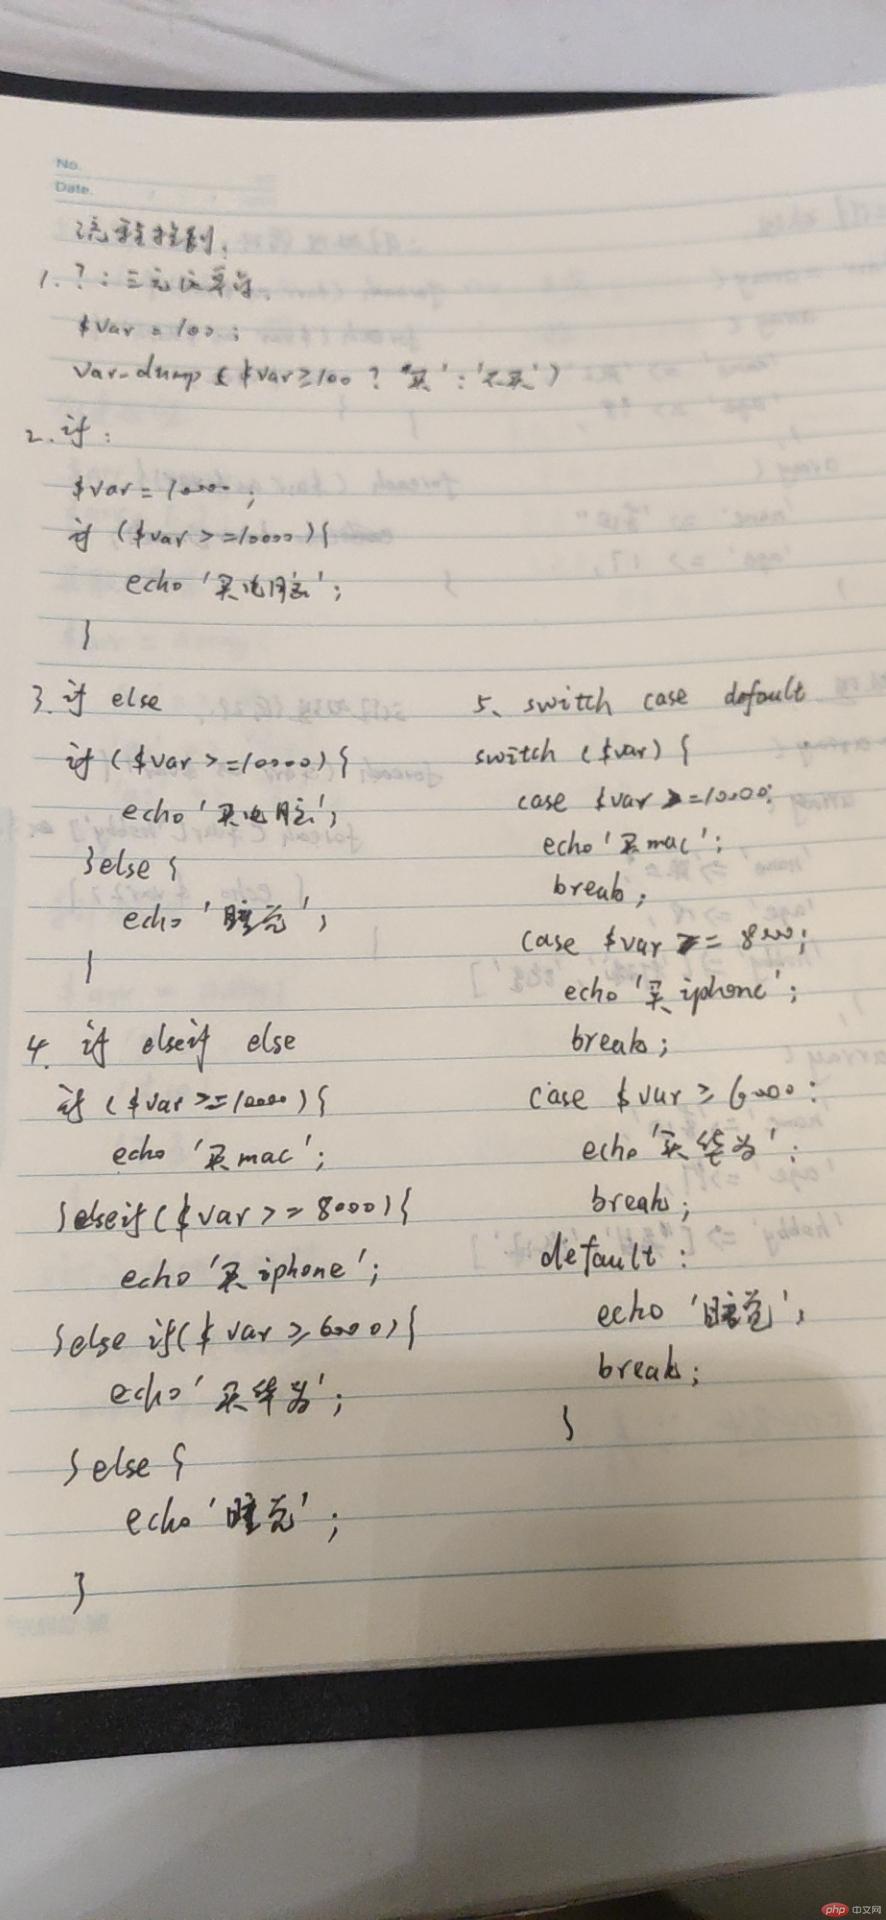 No.
Date.
流程控制.
1. ? : 三元运算符
$var = 100;
var_dump ($var ≥100 ? '买' : '不买')
2. if :
$var = 10000;
if ($var >=10000){
echo '买电脑';
}
3. if else
if ($var >=10000){
echo '买电脑';
}else {
echo '睡觉';
}
4. if elseif else
if ($var >=10000){
echo '买mac';
}elseif($var >= 8000){
echo '买iphone';
}else if($var ≥6000){
echo '买华为';
}else {
echo '睡觉';
}
5、switch case default
switch ($var) {
case $var >=10000:
echo '买mac';
break;
case $var >= 8000;
echo '买iphone';
break;
case $var ≥ 6000:
echo '买华为';
break;
default :
echo '睡觉';
break;
}
php 中文网